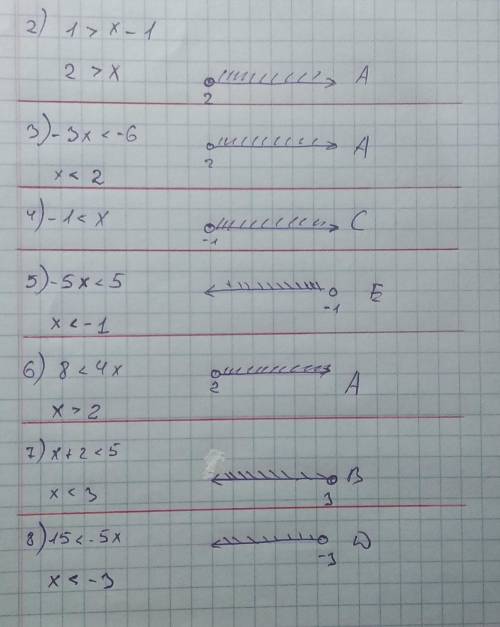 2) 1 > x - 1
2 > x
2
A
3) -3x < -6
x < 2
2
A
4) -1 < x
-1
C
5) -5x < 5
x < -1
-1
E
6) 8 < 4x
x > 2
2
A
7) x + 2 < 5
x < 3
3
B
8) 15 < -5x
x < -3
-3
D